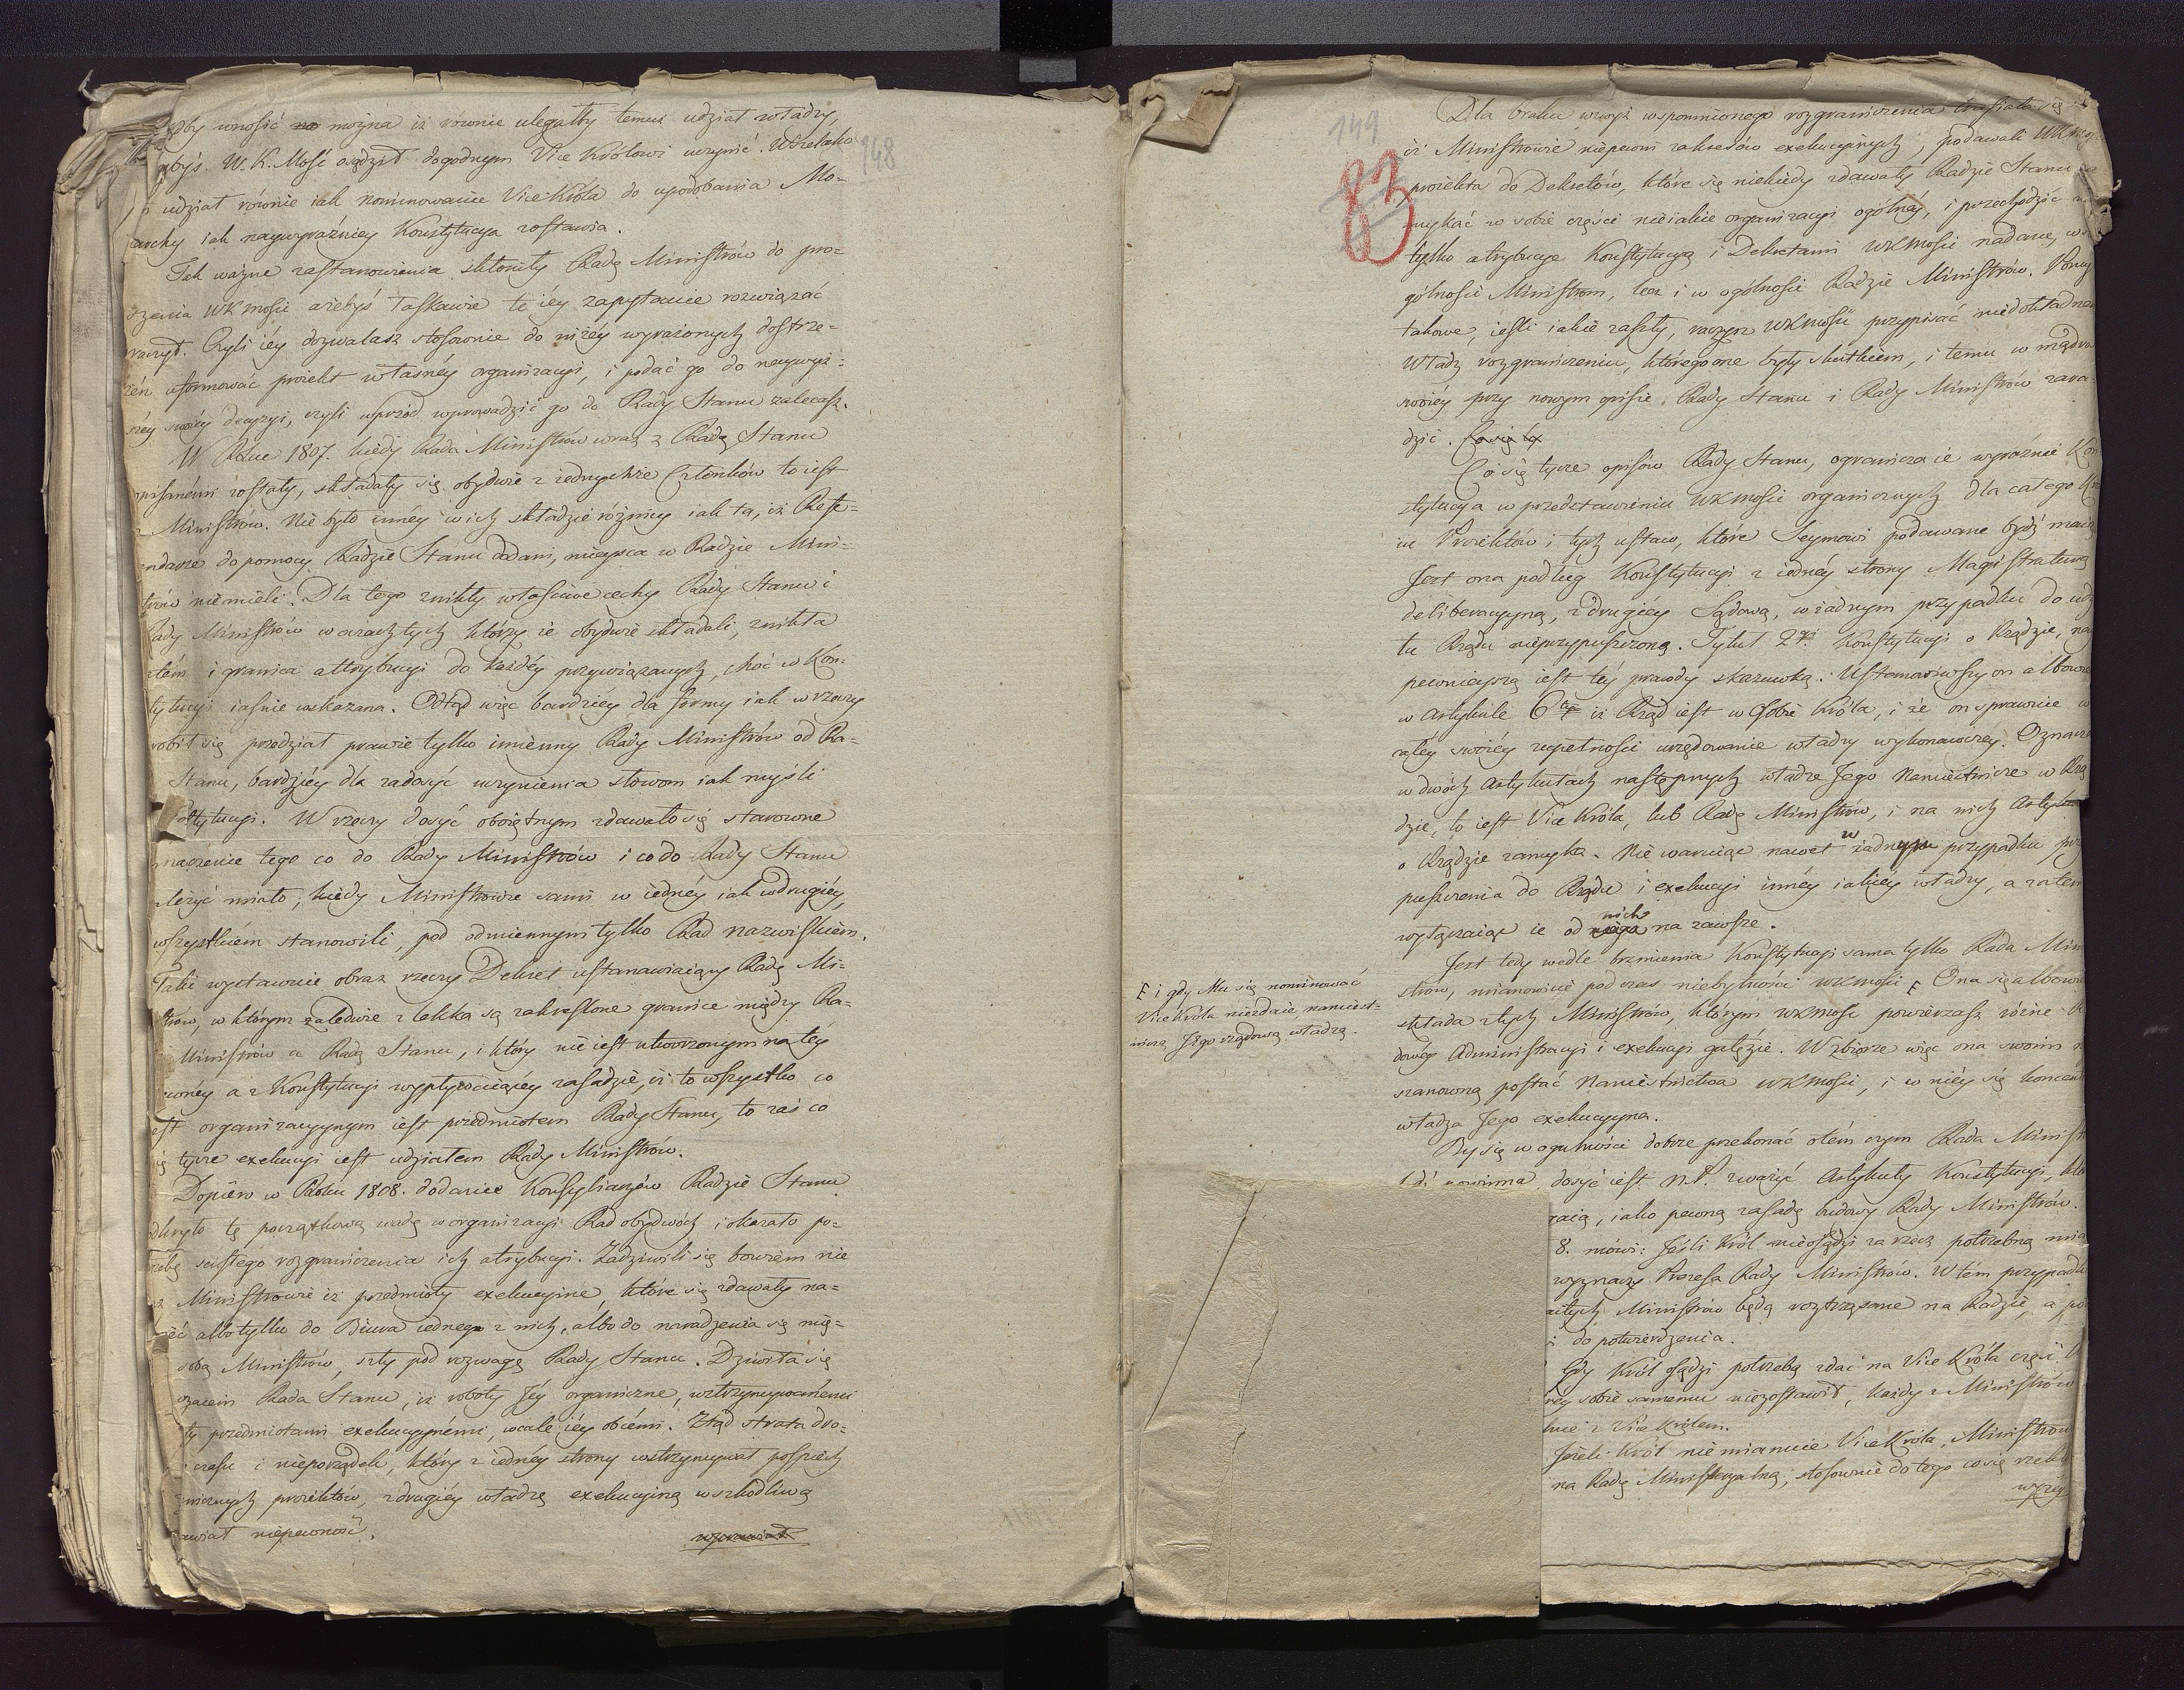 148
unosić no można iż rownie ulegałby temuż udział władzy,
abyś W. K. Mość osądził dogodnym Vice Królowi uczynić. Wszelako
udział rownie iak nominowanie ViceKróla do upodobania Mo-
narchy iak naywyraźniey Konstytucya zostawia.
Tak ważne zastanowienia skłoniły Radę Ministrów do pro-
dzenia WKMości ażebyś łaskawie te iéy zapytanie rozwiązać
raczył. Czyli iéy dozwalasz stosownie do niżéy wyrażonych dostrze-
żeń uformować proiekt własnéy organizacyi, i podać go do naywyż-
széy swoiéy decyzyi, czyli wprzód wprowadzić go do Rady Stanu zalecasz.
W Roku 1807. kiedy Rada Ministrów wraz z Radą Stanu
opisanémi zostały, składały się obydwie z iednychże Członków to iest
z Ministrów. Nie było innéy w ich składzie różnicy iak ta, iż Refe-
rendarze do pomocy Radzie Stanu dodani, mieysca w Radzie Mini-
strów niemieli. Dla tego znikły właściwe cechy Rady Stanu i
Rady Ministrów w oczach tych którzy ie obydwie składali, znikła
zatém i granica attrybucyi do każdéy przywiązanych, choć w Kon-
stytucyi iaśnie wskazana. Odtąd więc bardziéy dla formy iak w rzeczy
robił się przedział prawie tylko imienny Rady Ministrów od Ra-
Stanu, bardziéy dla zadosyć uczynienia słowom iak myśli
Konstytucyi. W rzeczy dosyć oboiętnym zdawało się starowne
znaczenie tego co do Rady Ministrów i co do Rady Stanu
należyć miało, kiedy Ministrowie sami w iednéy iak w drugiéy,
wszystkiem stanowili, pod odmiennym tylko Rad nazwiskiem.
Taki wystawuie obraz rzeczy Dekret ustanawiaiący Radę Mi-
nistrów, w którym zaledwie z lekka są zakreślone granice między Ra-
Ministrów a Radą Stanu, i który nie iest utworzonym na téy
pewnéy a z Konstytucyi wypływaiącéy zasadzie, iż to wszystko co
iest organizacyynym iest przedmiotem Rady Stanu, to zaś co
się tycze exekucyi iest udziałem Rady Ministrów.
Dopiéro w Roku 1808. dodanie Konsyliarzów Radzie Stanu
odkryło tę początkową wadę w organizacyi Rad obydwóch, i okazało po-
trzebę ścisłego rozgraniczenia ich atrybucyi. Zadziwili się bowiem nie
raz Ministrowie iż przedmioty exekucyine, które się zdawały na-
leżeć albo tylko do Biura iednego z nich, albo do naradzenia się mię-
sobą Ministrów, szły pod rozwagę Rady Stanu. Dziwiła się
Rada Stanu, iż roboty Jéy organiczne, wstrzymywanémi
były przedmiotami exekucyynémi, wcale iéy obcémi. Ztąd strata dro-
czasu i nieporządek, który z iednéy strony wstrzymywał pośpiech
organicznych proiektów, z drugiéy władzę exekucyiną w szkodliwą
wprawiał niepewność.
wprawiał
149
83
Dla braku wzwyż wspomnionego rozgraniczenia trafiało się
iż Ministrowie niepewni zakresów exekucyinych, podawali WKMoś
proiekta do Dekretów, które się niekiedy zdawały Radzie Stanu za-
mykać w sobie części nieiakie organizacyi ogólnéy, i przechodzić nie
tylko atrybucye Konstytucyą i Dekretami WKMości nadane, w szcze-
gólności Ministrom, lecz i w ogólności Radzie Ministrów. Pomył
takowe, ieśli iakie zaszły, raczysz WKMość przypisać niedokładnem
Władz rozgraniczeniu, którego one były skutkiem, i temu w mądro
swoiéy przy nowym opisie Rady Stanu i Rady Ministrów zara-
dzić. Co się ty
Co się tycze opisów Rady Stanu, ogranicza ie wyraźnie Kon
stytucya w przedstawieniu WKMości organicznych dla całego Kra
iu Proiektów i tych ustaw, które Seymowi podawane bydź maią
Jest ona podług Konstytucyi z iednéy strony Magistraturą
deliberacyyną, z drugiéy Sądową, w żadnym przypadku do udz
łu Rządu nieprzypuszczoną. Tytuł 2gi Konstytucyi o Rządzie, nay
pewnieyszą iest téy prawdy skazuwką. Ustanowiwszy on albowie
w Artykule 6tym iż Rząd iest w Osobie Króla, i że on sprawuie w
całéy swoiéy zupełności urzędowanie władzy wykonawczey. Oznacza
w dwóch Artykułach następnych władze Jego Namiestnicze w Rzą
dzie, to iest Vice Króla, lub Radę Ministrów, i na nich Artykuł
o Rządzie zamyka. Nie waruiąc nawet w żadnym przypadku przy
puszczenia do Rządu i exekucyi innéy iakiéy władzy, a zatem
wyłączaiąc ie od niego nich na zawsze.
Jest tedy wedle brzmienia Konstytucyi sama tylko Rada Mini
strów, mianowicie podczas niebytności WKMości F Ona się albowiem
składa z tych Ministrów, którym WKMość powierzasz różne
dowéy Administracyi i exekucyi gałęzie. W zbiorze więc ona swoim
szanowną postać Namiestnictwa WKMości, i w niéy się koncent
władza Jego exekucyyna.
F i gdy Mu się nominować
ViceKróla niezdaie namiest-
niczą Jego rządową władzą.
By się w ogulności dobrze przekonać o tém czym Rada Minist
powinna, dosyć iest N. P. zważyć Artykuły Konstytucyi, któ
iako pewną zasadę budowy Rady Ministrów.
8. mówi: Jeśli Król nieosądzi za rzecz potrzebną mia
wyznaczy Prezesa Rady Ministrów. W tém przypadku
Ministrów będą roztrząsane na Radzie, a po
do potwierdzenia.
Gdy Król osądzi potrzebą zdać na Vice Króla część
sobie samemu niezostawił, każdy z Ministrów
z Vice Królem.
Jeżeli Król niemianuie ViceKróla, Ministrow
na Radę Ministeryalną, stosownie do tego co się rzekło
wyżéy